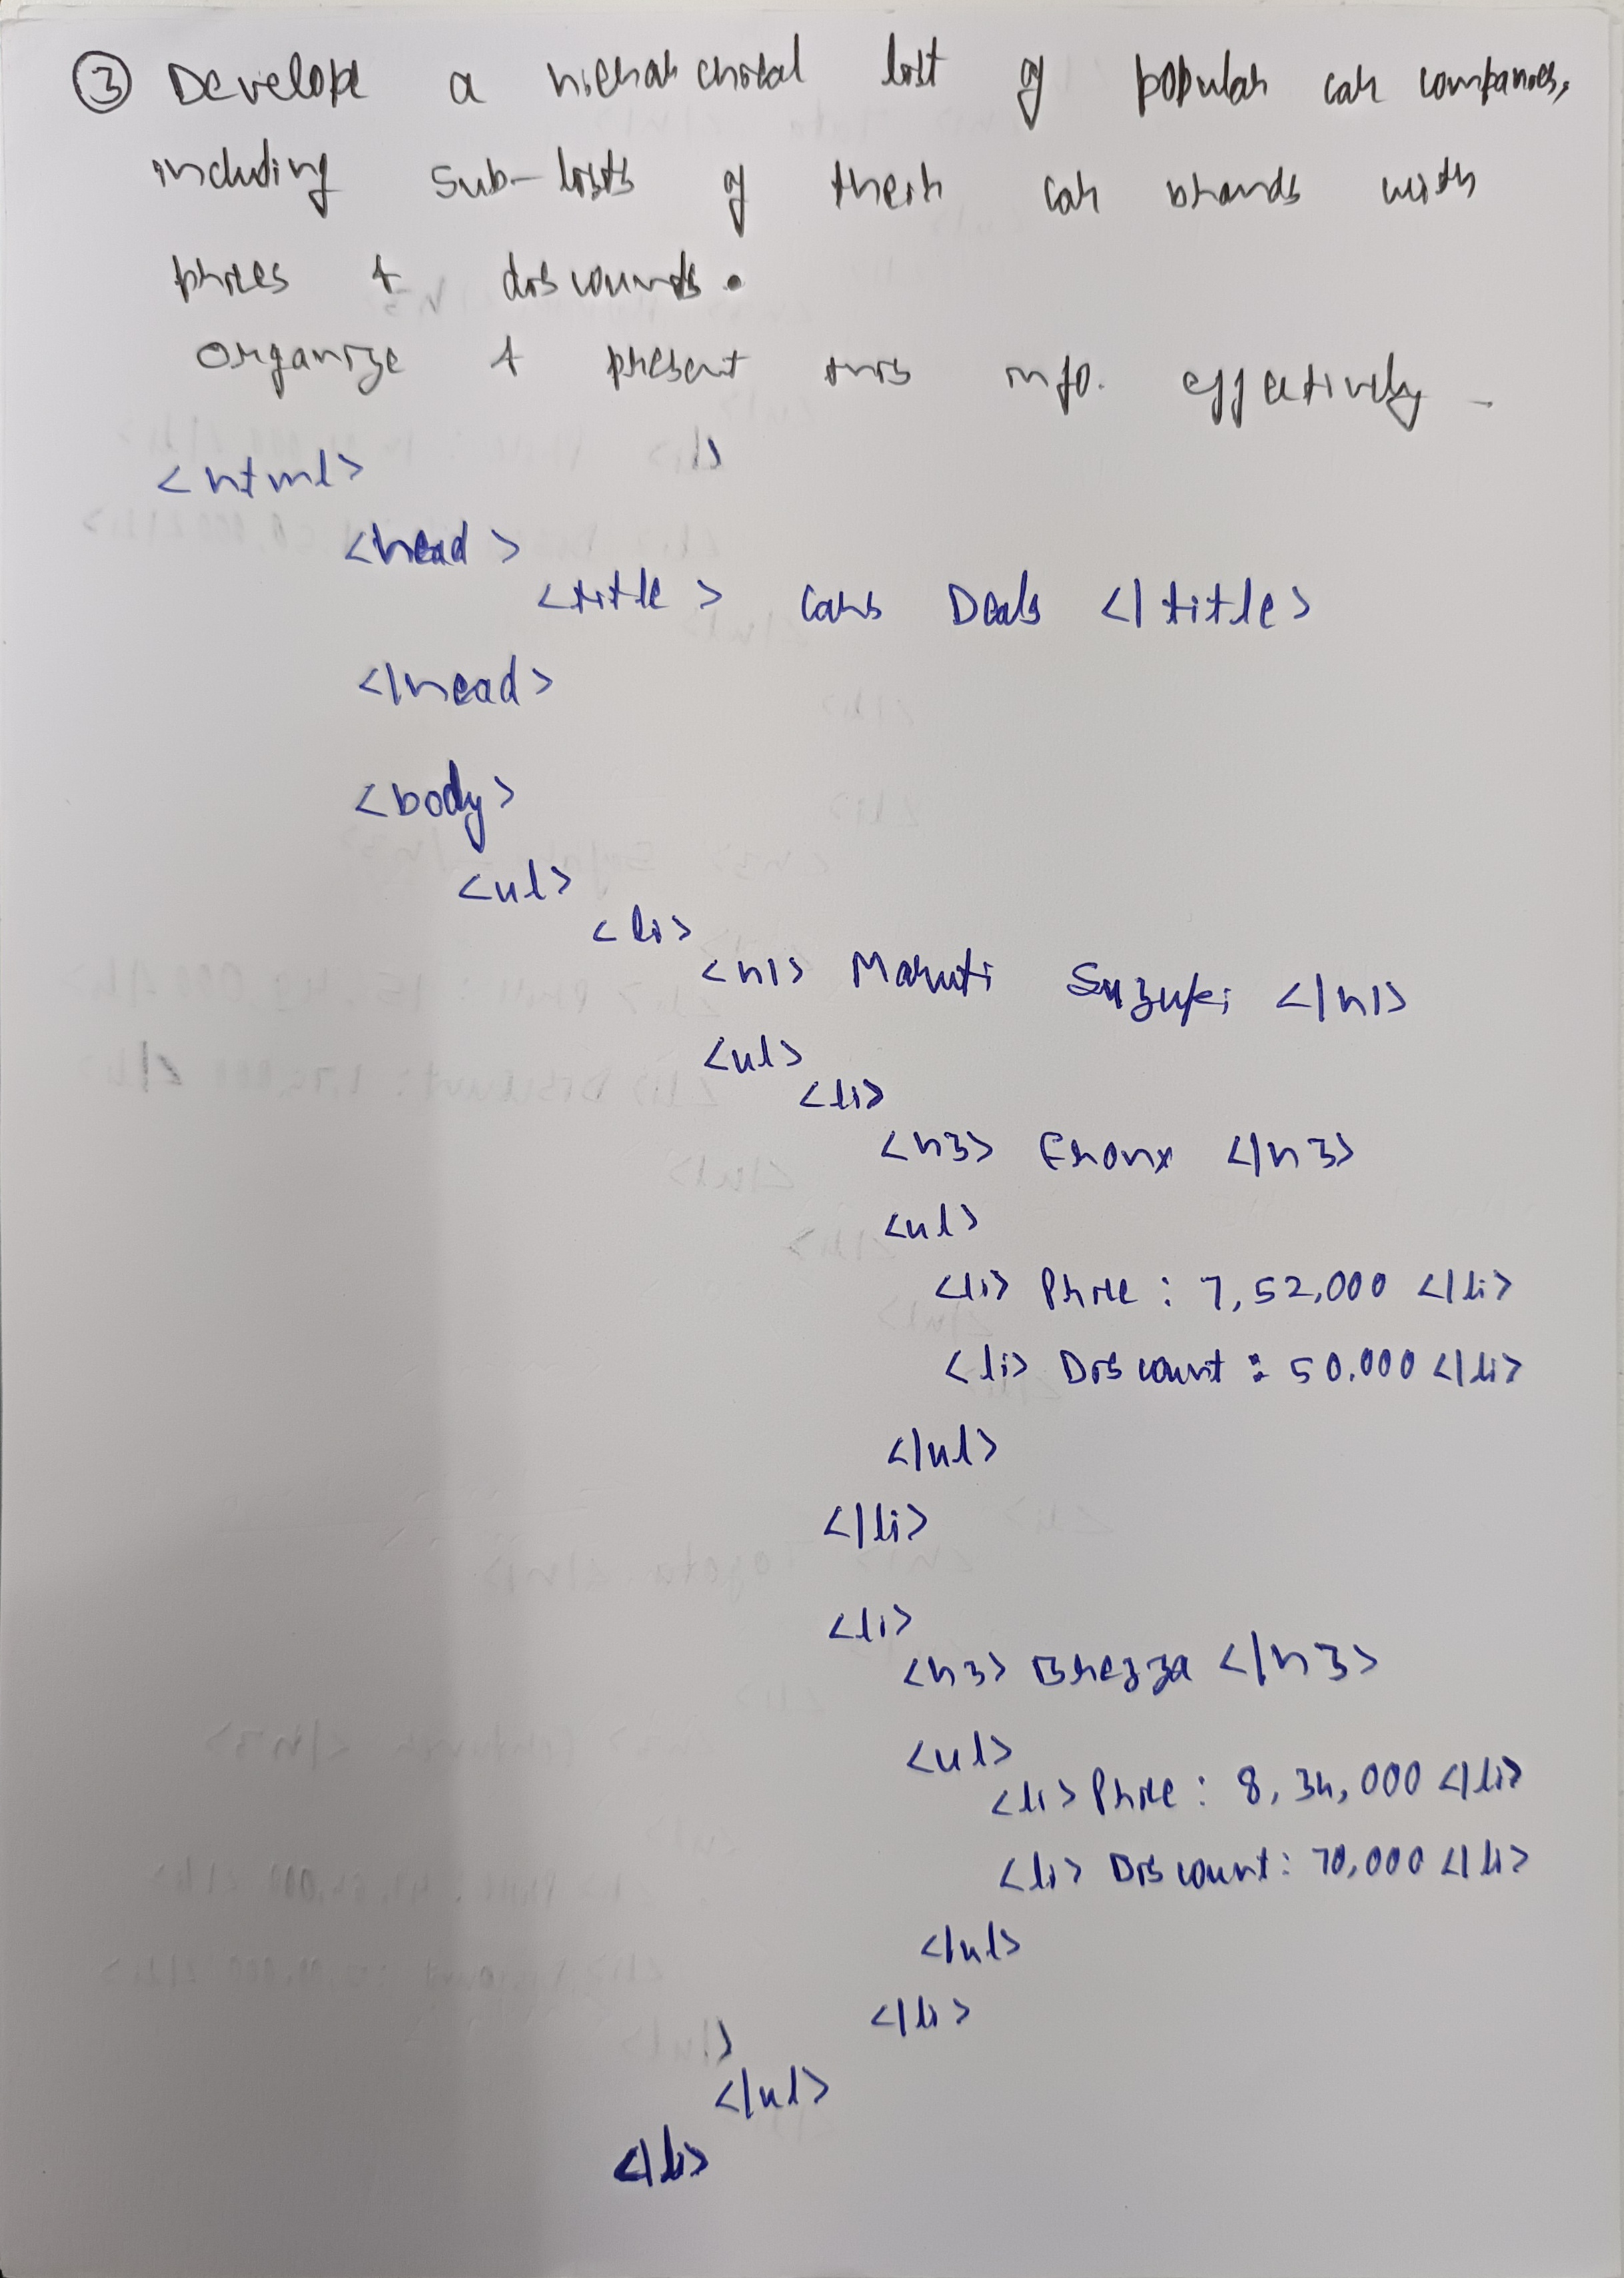 ③ Develop a hierarchical list of popular car companies,
including sub-lists of their car brands with
prices & discounts.
Organize & present this info. effectively -
<html>
<head>
<title> Cars Deals </title>
</head>
<body>
<ul>
<li>
<h1> Maruti Suzuki </h1>
<ul>
<li>
<h3> Fronx </h3>
<ul>
<li> Price : 7,52,000 </li>
<li> Discount : 50,000 </li>
</ul>
</li>
<li>
<h3> Brezza </h3>
<ul>
<li> Price : 8,34,000 </li>
<li> Discount : 70,000 </li>
</ul>
</li>
</ul>
</li>